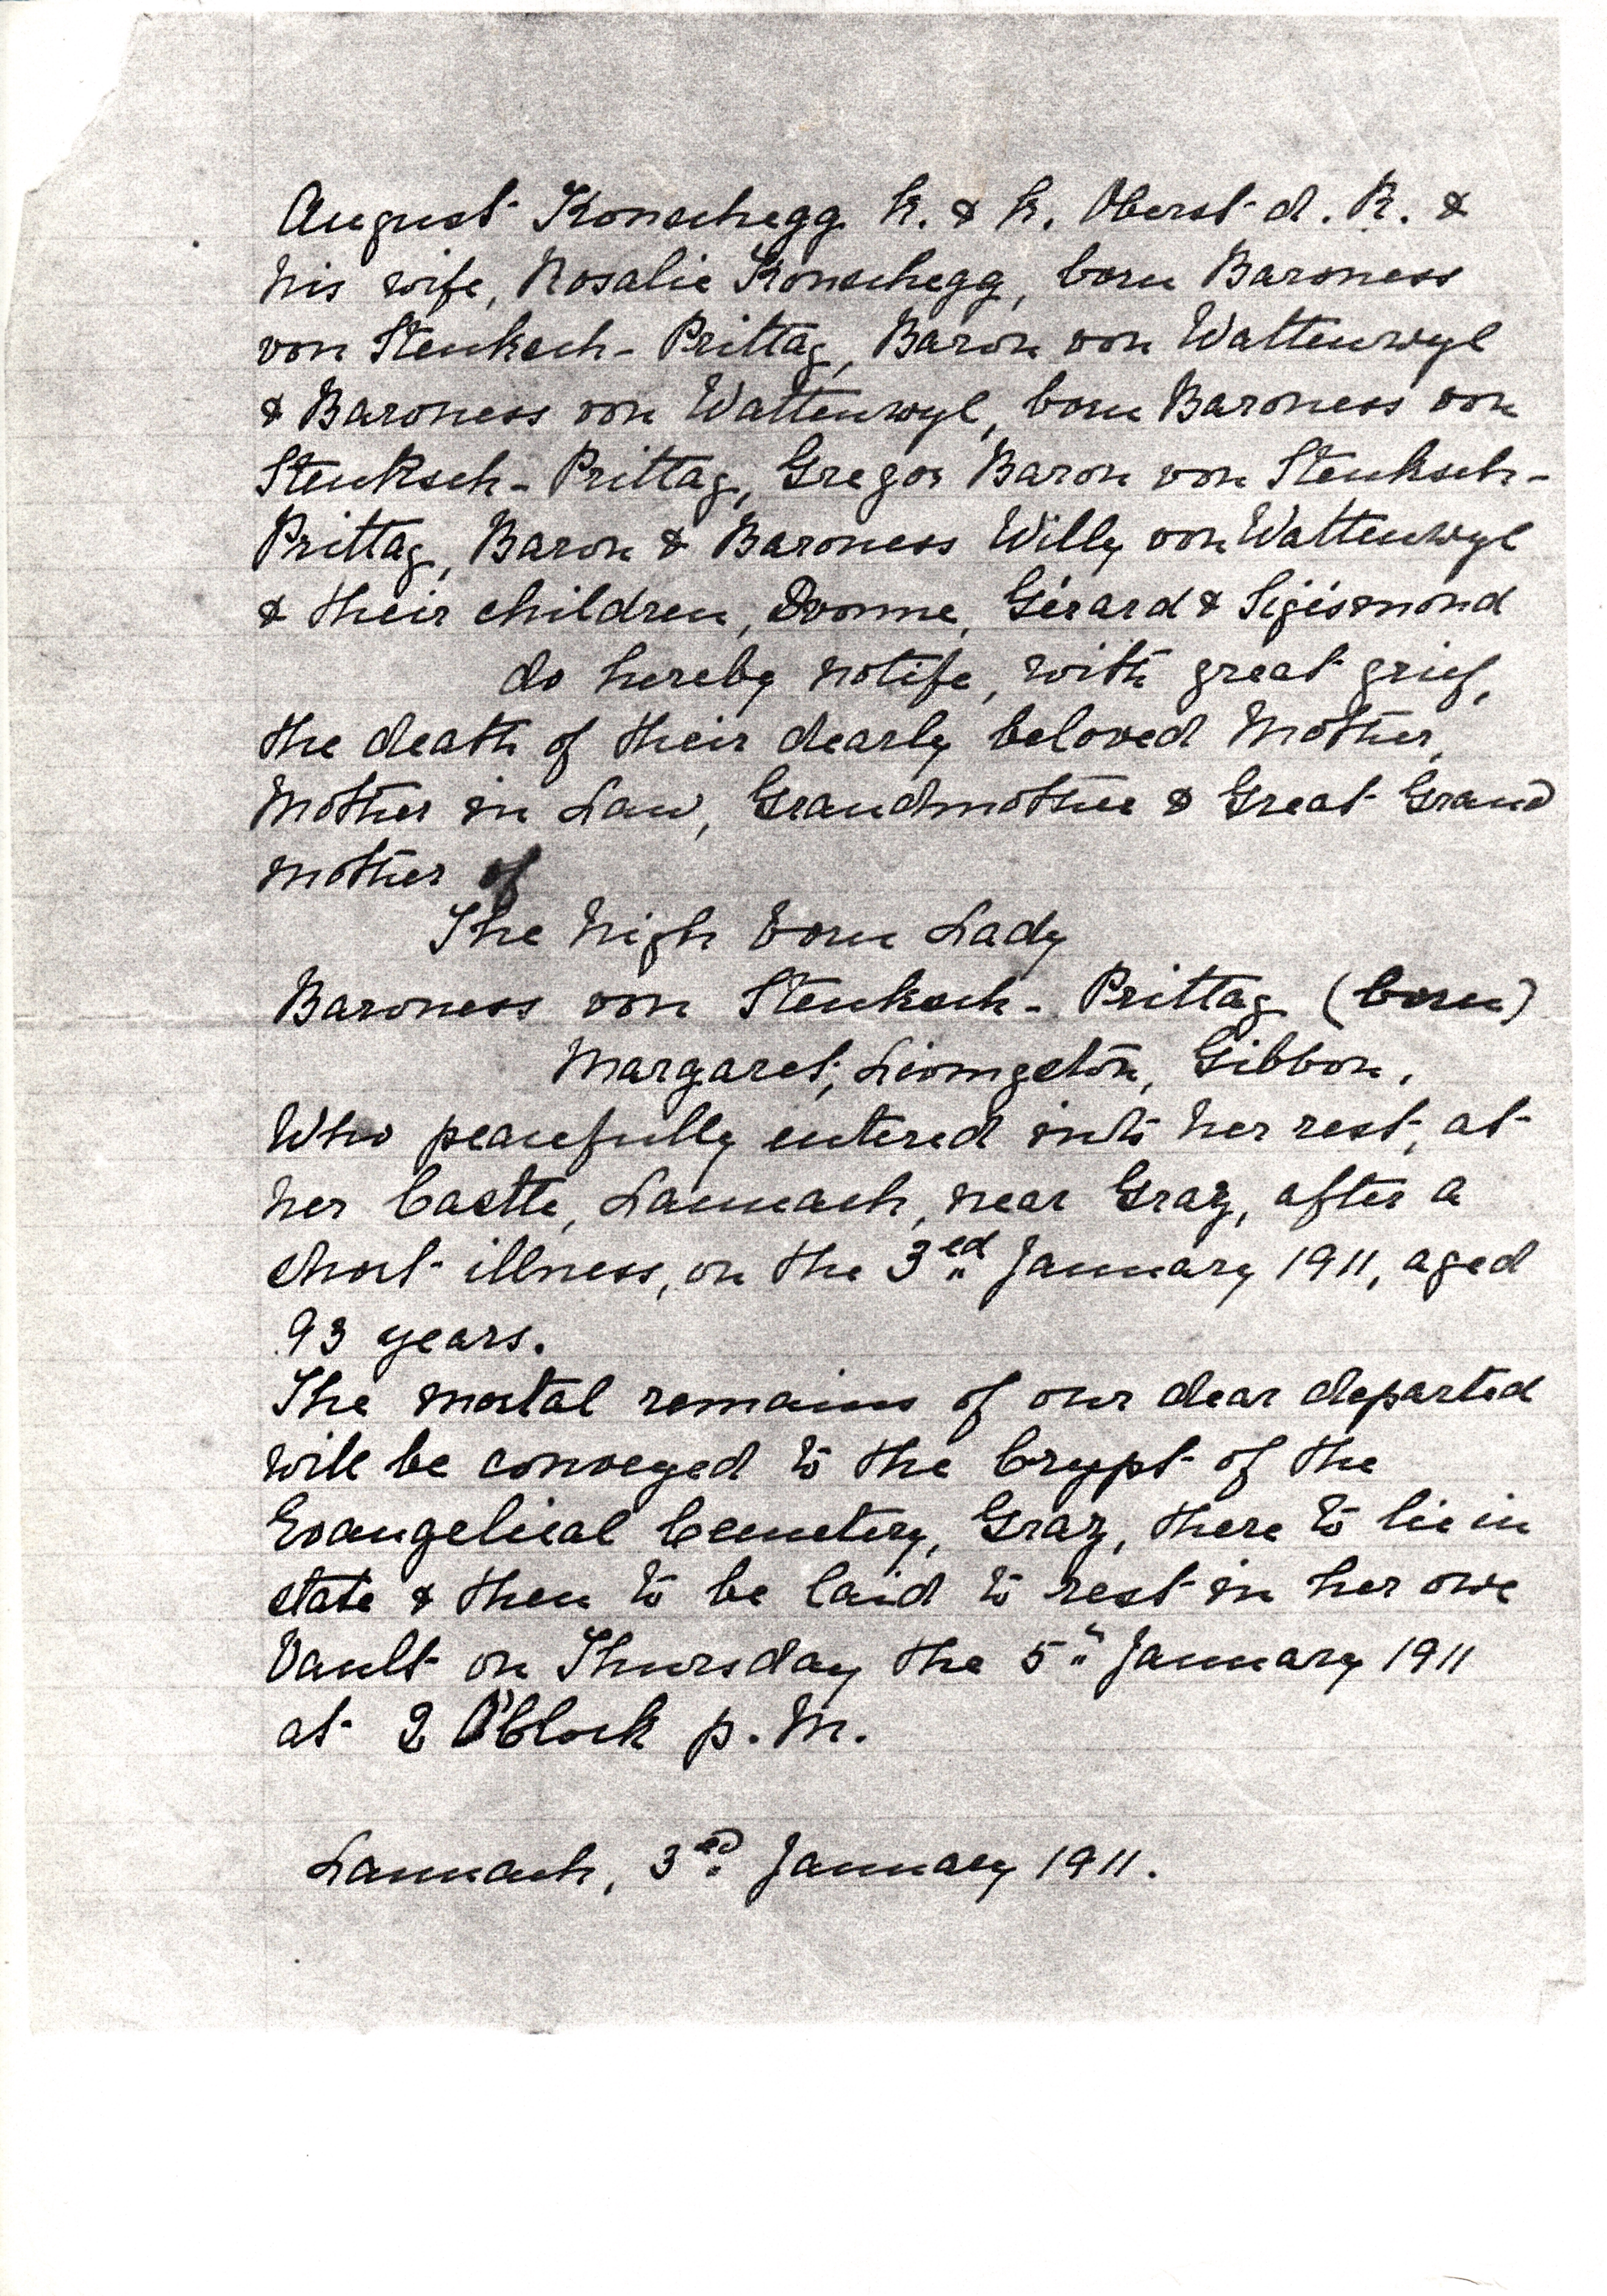 August Konschegg k. & k. Oberst d. R. &
his wife, Rosalie Konschegg, born Baroness
von Stenksch- Prittag, Baron von Wattenwyl
& Baroness von Wattenwyl, born Baroness von
Stenksch- Prittag, Gregor Baron von Stenksch-
Prittag, Baron & Baroness Willy von Wattenwyl
& their children, Yvonne, Gérard & Sigismond
do hereby notife, with great grief,
the death of their dearly beloved Mother,
Mother in Law, Grandmother & Great Grand
mother of
The high born Lady
Baroness von Stenksch- Prittag (born)
Margaret, Livingston, Gibbon.
Who peacefully entered into her rest, at
her Castle, Lannach, near Graz, after a
short illness, on the 3ed January 1911, aged
93 years.
The mortal remains of our dear departed
will be conveyed to the Crypt of the
Evangelical Cemetery, Graz, there to lie in
state & then to be laid to rest in her own
Vault on Thursday the 5" January 1911
at 2 O'Clock p. M.
Lannach, 3ed January 1911.